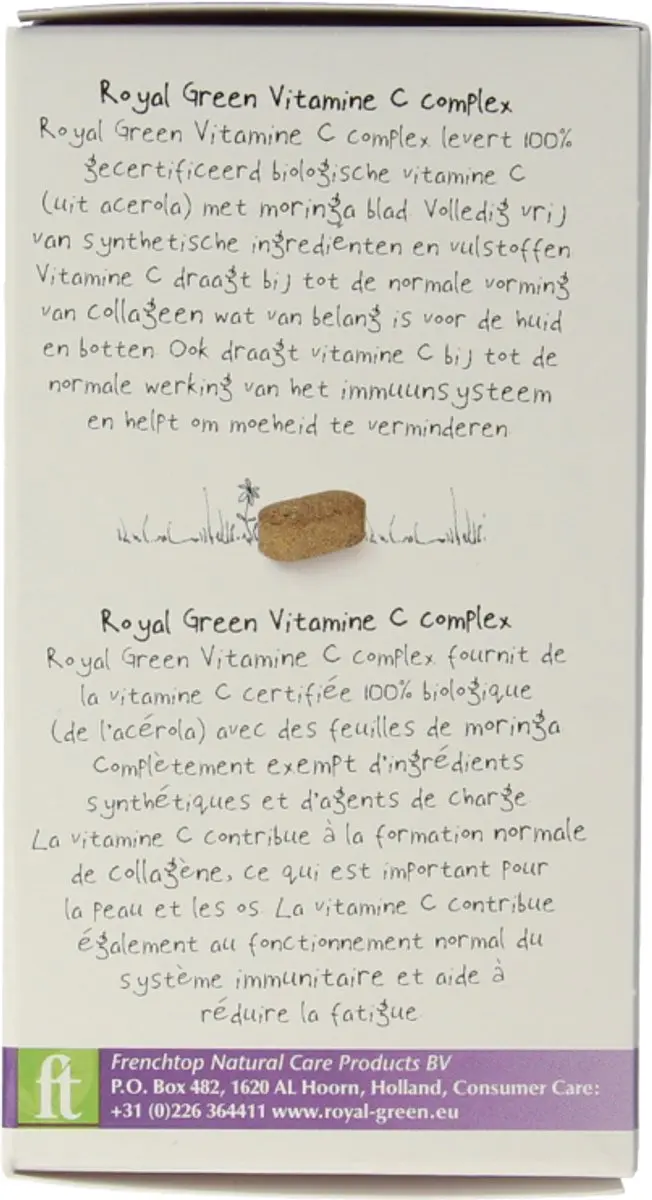 Royal Green Vitamine C complex
Royal Green Vitamine C complex levert 100%
gecertificeerd biologische vitamine C
(uit acerola) met moringa blad. Volledig vrij
van synthetische ingredienten en vulstoffen
Vitamine C draagt bij tot de normale vorming
van collageen wat van belang is voor de huid
en botten. Ook draagt vitamine C bij tot de
normale werking van het immuunsysteem
en helpt om moeheid te verminderen.
Royal Green Vitamine C complex
Royal Green Vitamine C complex fournit de
la vitamine C certifiée 100% biologique
(de l'acérola) avec des feuilles de moringa
Complètement exempt d'ingrédients
synthétiques et d'agents de charge
La vitamine C contribue à la formation normale
de collagène, ce qui est important pour
la peau et les os. La vitamine C contribue
également au fonctionnement normal du
système immunitaire et aide à
réduire la fatigue
ft
Frenchtop Natural Care Products BV
P.O. Box 482, 1620 AL Hoorn, Holland, Consumer Care:
+31 (0)226 364411 www.royal-green.eu